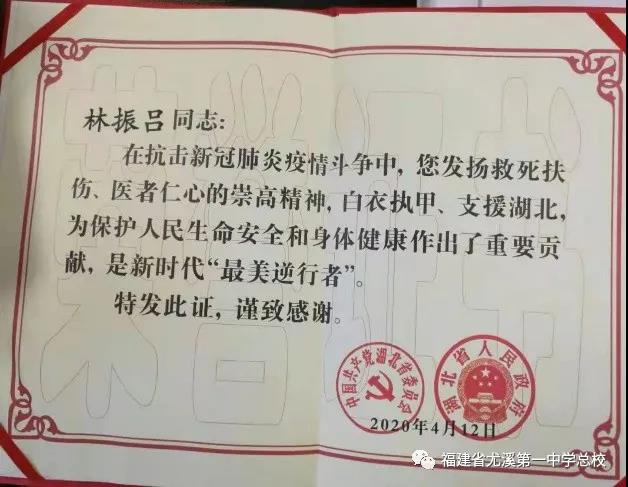 林振吕同志：
在抗击新冠肺炎疫情斗争中，您发扬救死扶
伤、医者仁心的崇高精神，白衣执甲、支援湖北，
为保护人民生命安全和身体健康作出了重要贡
献，是新时代“最美逆行者”。
特发此证，谨致感谢。
中国共产党湖北省委员会
湖北省人民政府
2020年4月12日
福建省尤溪第一中学总校